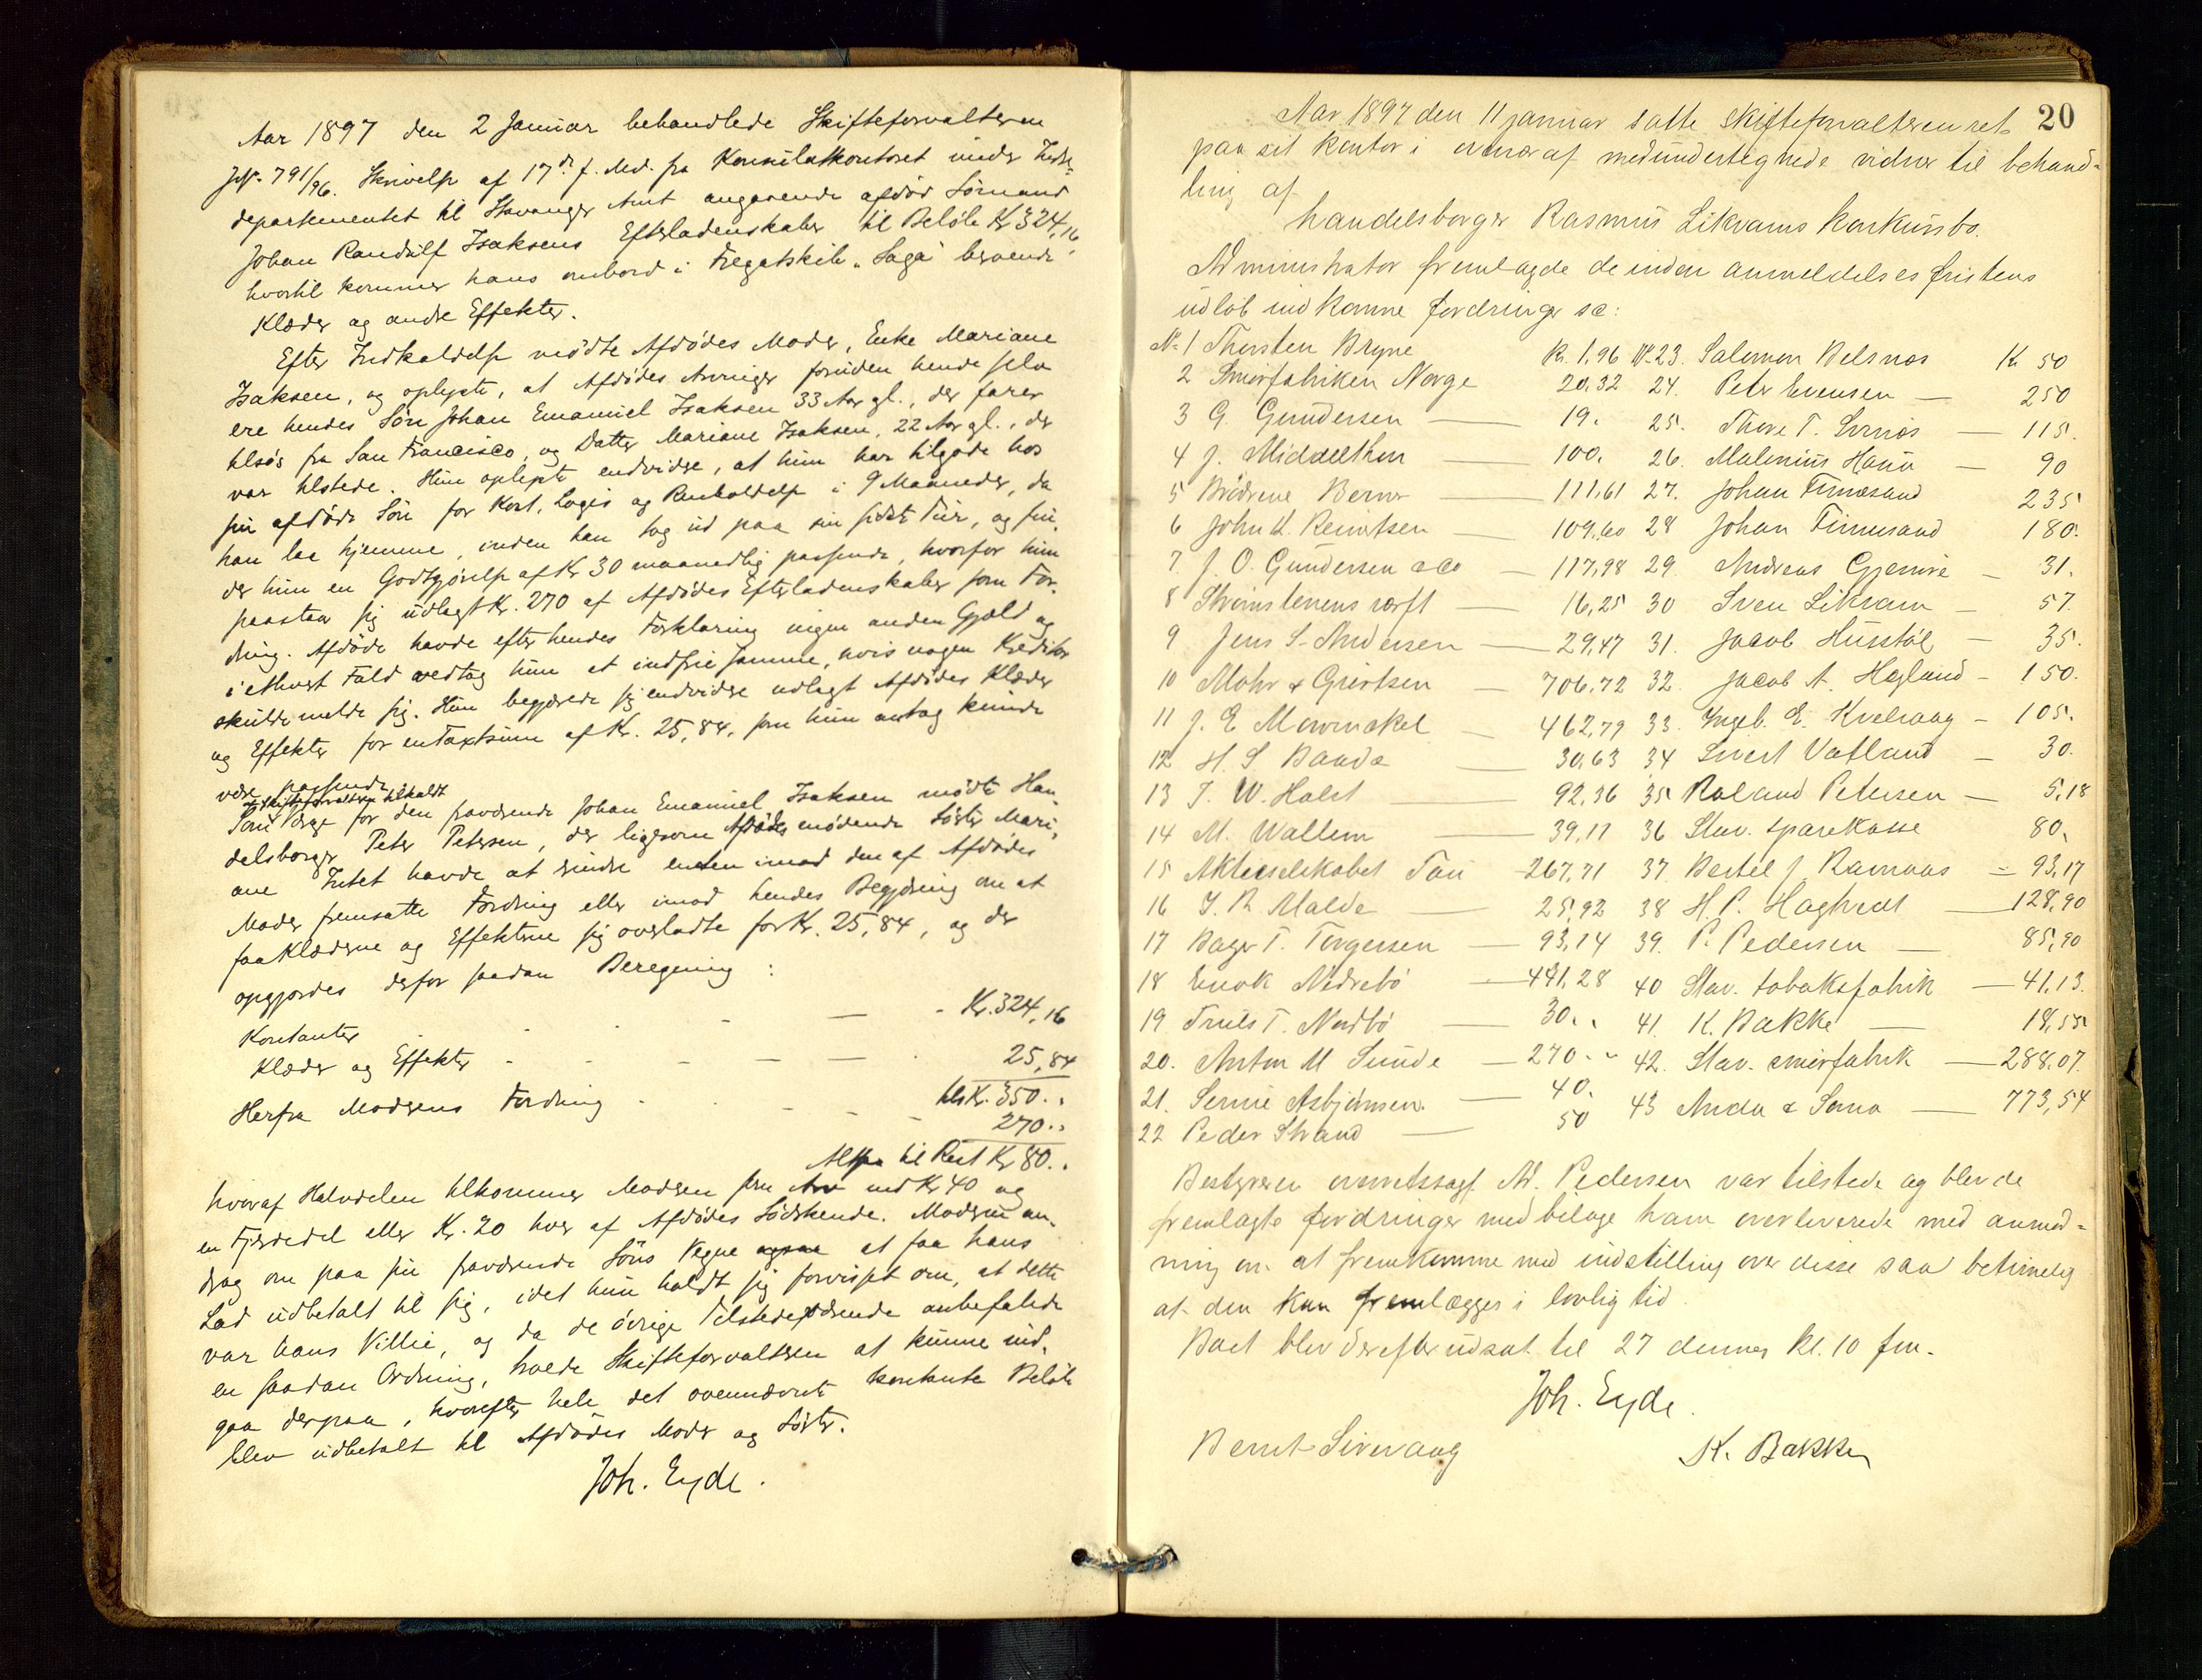 Aar 1897 den 2 Januar behandlede Skifteforvalteren
Jnr. 791/96. Skrivelse af 17de f. Md. fra Konsulatkontoret under Indre-
departementet til Stavanger Amt angaaende afdöd Sömand
Johan Randulf Isaksens Efterladenskaber til Belöb Kr 324,16,
hvortil kommer hans ombord i Fregatskib "Saga" beroende
Klæder og andre Effekter.
Efter Indkaldelse mödte Afdödes Moder, Enke Mariane
Isaksen, og oplyste, at Afdödes Arvinger foruden hende selv
ere hendes Sön Johan Emanuel Isaksen 33 Aar gl., der farer
tilsös fra San Francisco, og Datter Mariane Isaksen, 22 Aar gl., der
var tilstede. Hun oplyste endvidere, at hun har tilgode hos
sin afdöde Sön for Kost, Logis og Renholdelse i 9 Maaneder, da
han laa hjemme, inden han tog ud paa sin sidste Tur, og fin-
der hun en Godtgjörelse af Kr 30 maanedlig passende, hvorfor hun
paastaar sig udlagt Kr. 270 af Afdödes Efterladenskaber som For-
dring. Afdöde havde efter hendes Forklaring ingen anden Gjæld og
i ethvert Fald vedtog hun at indfrie samme, hvis nogen Kreditor
skulde melde sig. Hun begjærede sig endvidere udlagt Afdödes Klæder
og Effekter for en Taxtsum af Kr. 25,84, som hun antog kunde
være passende.
Som af skifteforvalteren tilkaldt Værge for den fraværende Johan Emanuel Isaksen mödte Han-
delsborger Peter Petersen, der ligesom Afdödes mödende Söster Mari-
ane Intet havde at erindre enten imod den af Afdödes
Moder fremsatte Fordring eller imod hendes Begjæring om at
faa Klæderne og Effekterne sig overladte for Kr. 25,84, og der
opgjordes derfor saadan Beregning:
Kontanter - - - - Kr. 324,16
Klæder og Effekter - - - - 25,84
tils Kr. 350..
Herfra Moderens Fordring - - - - 270..
Altsaa til Rest Kr 80..
hvoraf Halvdelen tilkommer Moderen som Arv med Kr 40 og
en Fjerdedel eller Kr. 20 hver af Afdödes Södskende. Moderen an-
drog om paa sin fraværende Söns Vegne at faa hans
Lod udbetalt til sig, idet hun holdt sig forvisset om, at dette
var hans Villie, og da de övrige Tilstedeværende anbefalede
en saadan Ordning, troede Skifteforvalteren at kunne ind-
gaa derpaa, hvorefter hele det ovennævnte kontante Belöb
blev udbetalt til Afdödes Moder og Söster.
Joh. Eyde.
20
Aar 1897 den 11 januar satte skifteforvalteren ret
paa sit kontor i overvær af medundertegnede vidner til behand-
ling af
handelsborger Rasmus Likvams konkursbo.
Administrator fremlagde de inden anmeldelsesfristens
udlöb indkomne fordringer sc:
No 1 Thorsten Bryne Kr. 1,96 No 23. Salomon Belsnes Kr 50
2 Smörfabriken Norge 20,32 24. Peter Evensen — 250
3 G. Gundersen — 19. 25. Thore T. Svinös — 115.
4 J. Middelthon — 100. 26. Malenius Hauü — 90
5 Brödrene Berner — 111,61 27. Johan Finnesand 235
6 John L. Reinertsen — 109,60 28 Johan Finnesand 180.
7. J. O. Gundersen & Co — 117,98 29. Andreas Gjesme — 31.
8 Strömsteens væft — 16,25 30 Sven Likvam — 57.
9 Jens S. Andersen — 29,47 31. Jacob Husstöl — 35.
10 Mohr & Giertsen — 706,72 32. Jacob A. Hegland — 150.
11 J. E. Mowinckel — 462,79 33. Ingeb. E. Kvelvaag — 105.
12 H. S. Baade — 30,63 34 Sivert Vatland — 30.
13 T. W. Holst 92,36 35 Roland Petersen — 5,18
14 M. Wallem — 39,11 36 Stav. sparekasse 80.
15 Aktieselskabet Tou — 267,71 37. Bertel J. Ramnaas — 93,17
16 T. R. Malde — 25,92 38 H. P. Haghredt — 128,90
17 Bager T. Torgersen — 93,14 39. P. Pedersen — 85,90
18 Enok Nedrebö — 491,28 40 Stav. tobaksfabrik — 41,13.
19 Truls T. Nordbö — 30.. 41. K. Bakke — 18,55
20. Anton M Sunde — 270.. 42. Stav. smörfabrik — 288.07.
21. Serine Asbjörnsen. — 40. 43 Anda & Soma — 773,54
22 Peder Strand — 50
Bestyreren overretssagf. Ad. Pedersen var tilstede og blev de
fremlagte fordringer med bilage ham overleverede med anmod-
ning om at fremkomme med indstilling over disse saa betimelig
at den kan fremlægges i lovlig tid.
Boet blev derefter udsat til 27 dennes kl. 10 fm.
Joh. Eyde.
Bernt Sivevaag K. Bakken